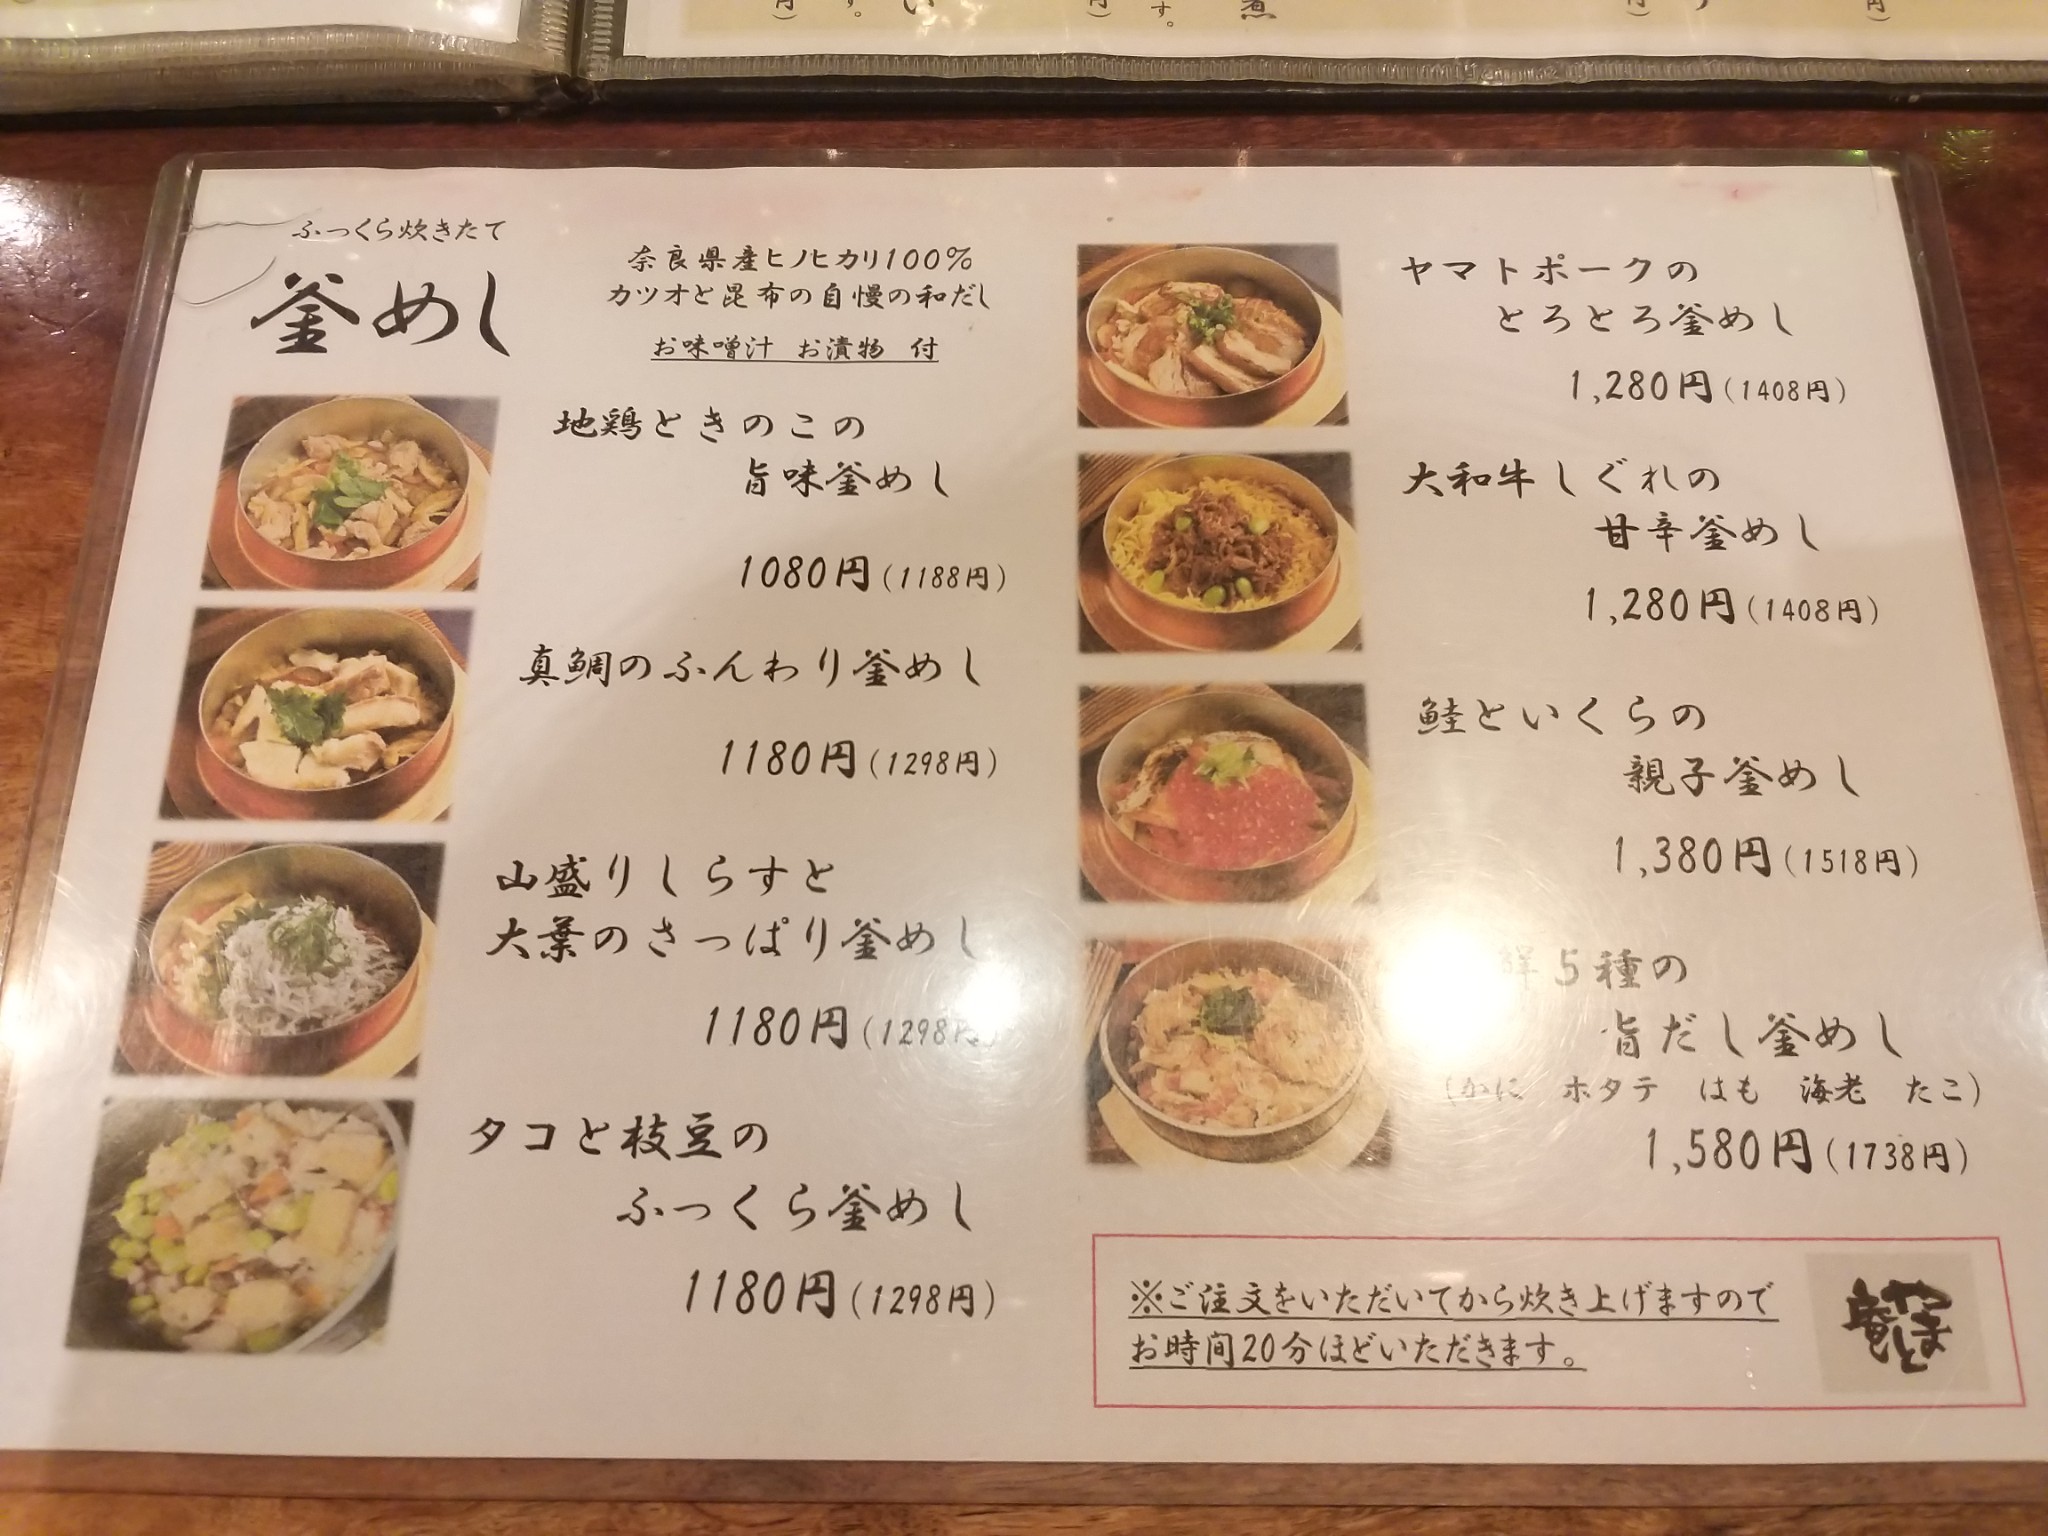 ふっくら炊きたて
釜めし
奈良県産ヒノヒカリ100%
カツオと昆布の自慢の和だし
お味噌汁 お漬物 付
地鶏ときのこの
旨味釜めし
1080円(1188円)
真鯛のふんわり釜めし
1180円(1298円)
山盛りしらすと
大葉のさっぱり釜めし
1180円(1298円)
タコと枝豆の
ふっくら釜めし
1180円(1298円)
ヤマトポークの
とろとろ釜めし
1,280円(1408円)
大和牛しぐれの
甘辛釜めし
1,280円(1408円)
鮭といくらの
親子釜めし
1,380円(1518円)
鮮5種の
旨だし釜めし
(かに ホタテ はも 海老 たこ)
1,580円(1738円)
※ご注文をいただいてから炊き上げますので
お時間20分ほどいただきます。
やまと庵